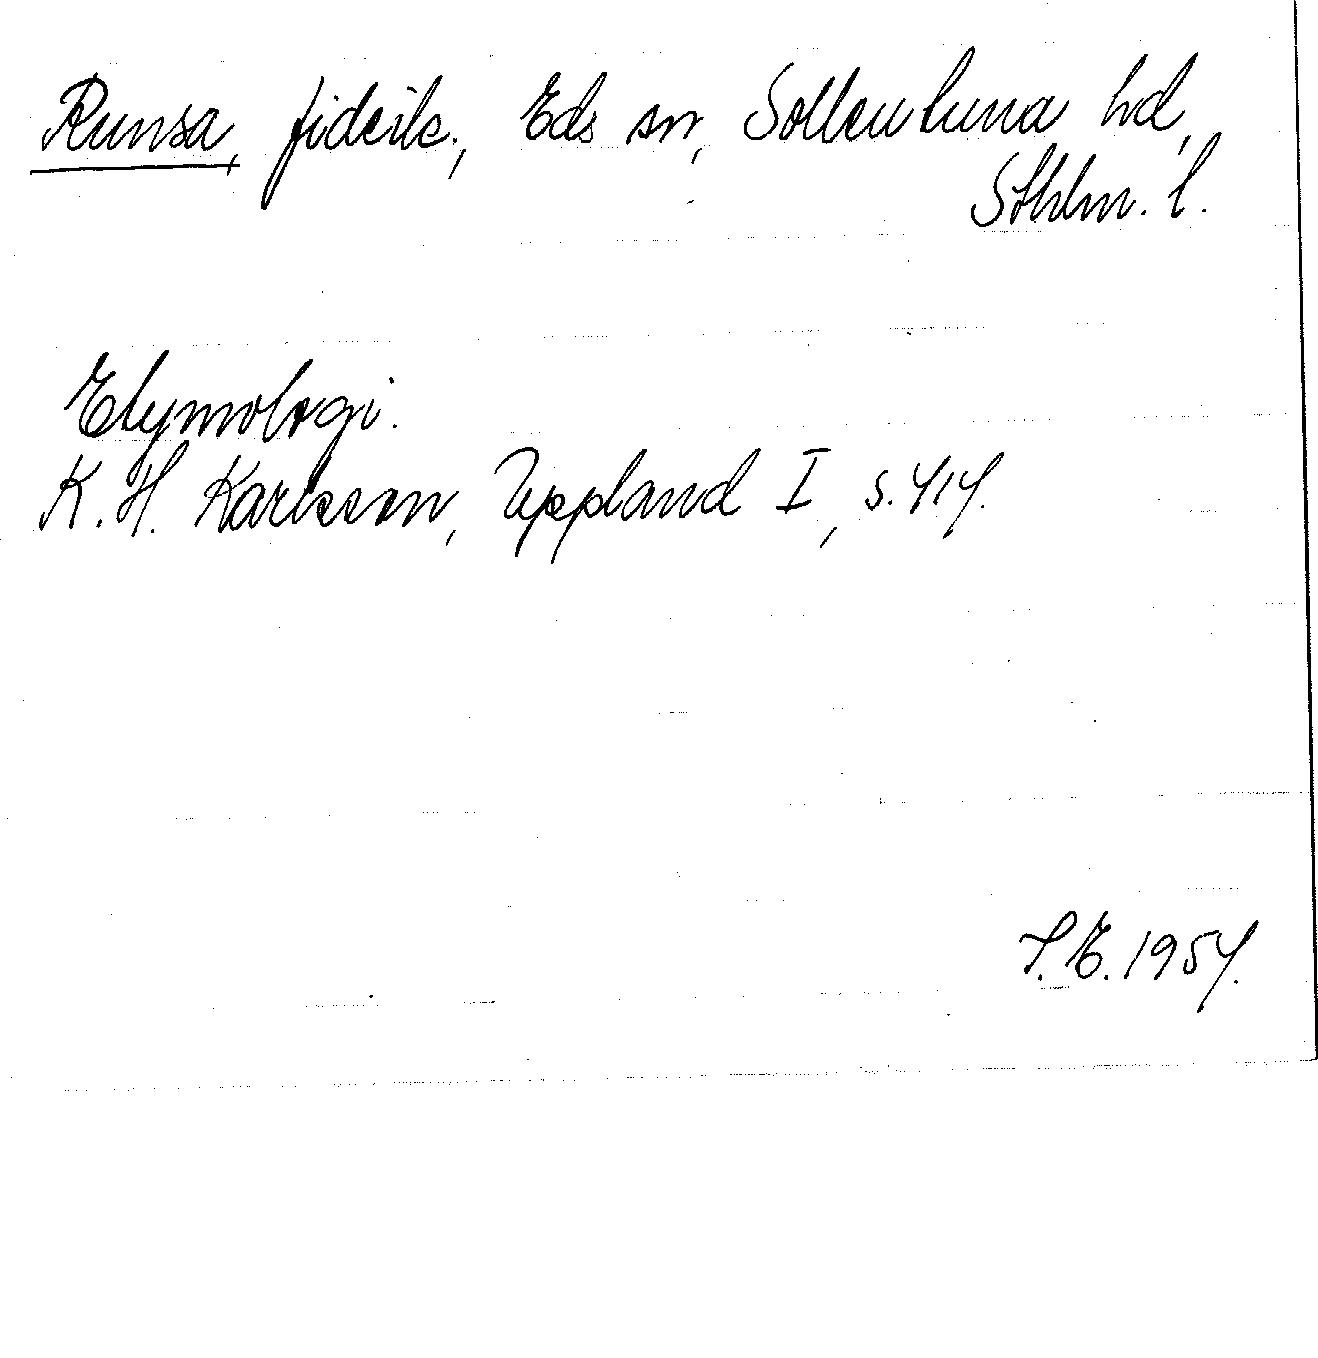 Runsa, fideik., Eds sn, Sollentuna hd,
Sthlm. l.
Etymologi.
K. H. Karlsson, Uppland I, s. 414.
S.E. 1954.